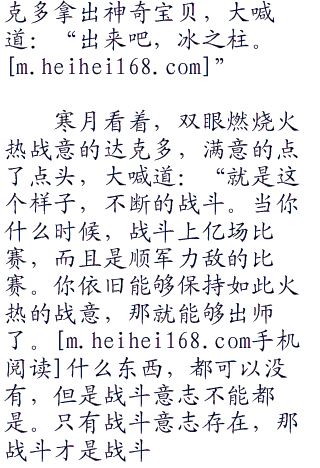 克多拿出神奇宝贝，大喊
道：“出来吧，冰之柱。
[m.heihei168.com]”
寒月看着，双眼燃烧火
热战意的达克多，满意的点
了点头，大喊道：“就是这
个样子，不断的战斗。当你
什么时候，战斗上亿场比
赛，而且是顺军力敌的比
赛。你依旧能够保持如此火
热的战意，那就能够出师
了。[m.heihei168.com手机
阅读]什么东西，都可以没
有，但是战斗意志不能都
是。只有战斗意志存在，那
战斗才是战斗